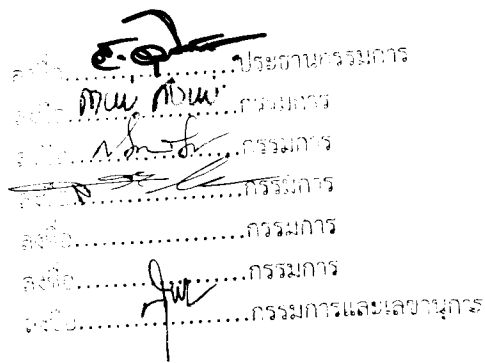 ลงชื่อ.......................ประธานกรรมการ
ลงชื่อ.......................กรรมการ
ลงชื่อ.......................กรรมการ
ลงชื่อ.......................กรรมการ
ลงชื่อ.......................กรรมการ
ลงชื่อ.......................กรรมการ
ลงชื่อ.......................กรรมการและเลขานุการ